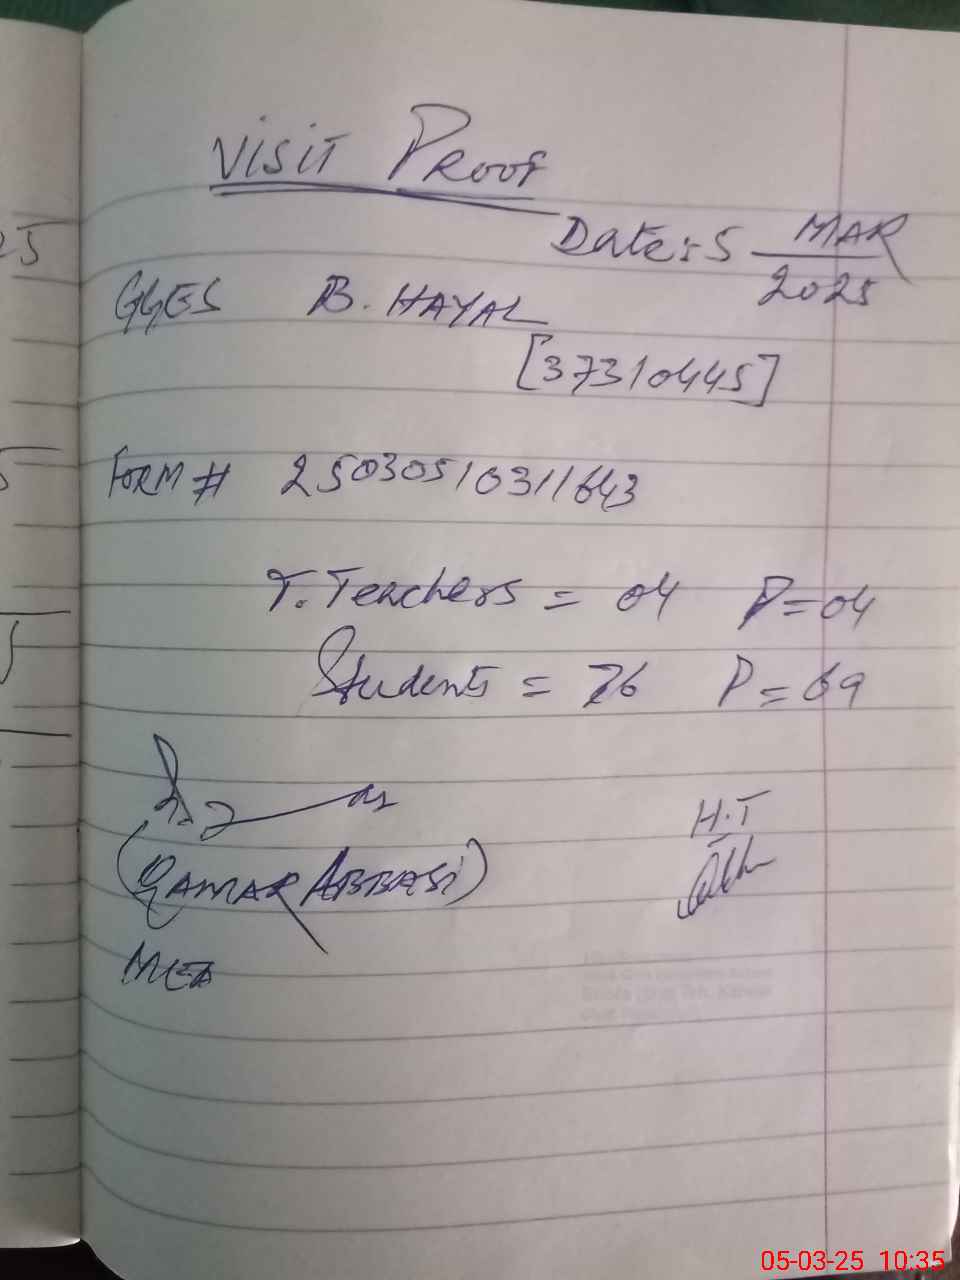 VISIT PROOF
Date: 5 MAR
2025
GGES B. HAYAL
[37310445]
FORM # 25030510311643
T. Teachers = 04 P = 04
Students = 76 P = 69
H.T
(QAMAR ABBASI)
MEA
25
5
5
05-03-25 10:35